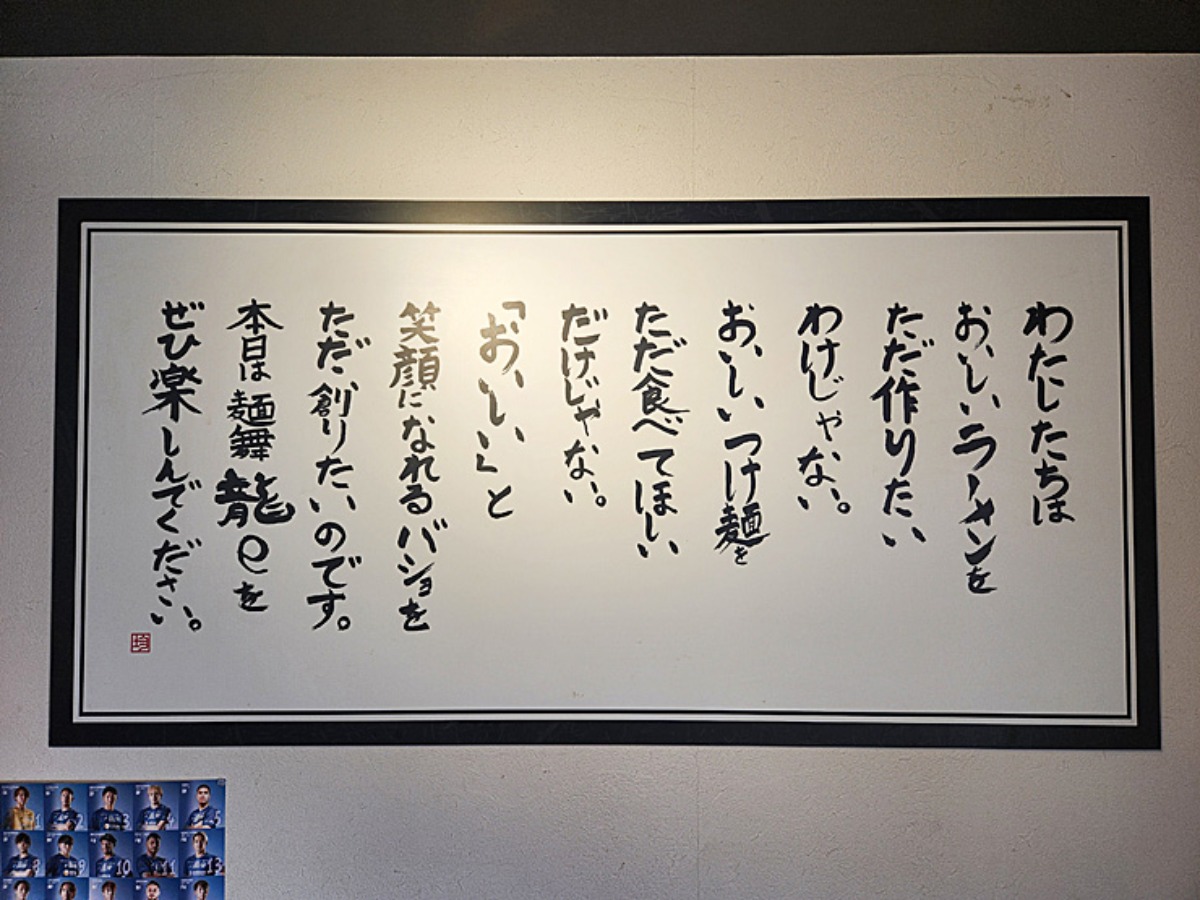 わたしたちは
おいしいラーメンを
ただ作りたい
わけじゃない。
おいしいつけ麺を
ただ食べてほしい
だけじゃない。
「おいしい」と
笑顔になれるバショを
ただ創りたいのです。
本日は麺舞龍eを
ぜひ楽しんでください。